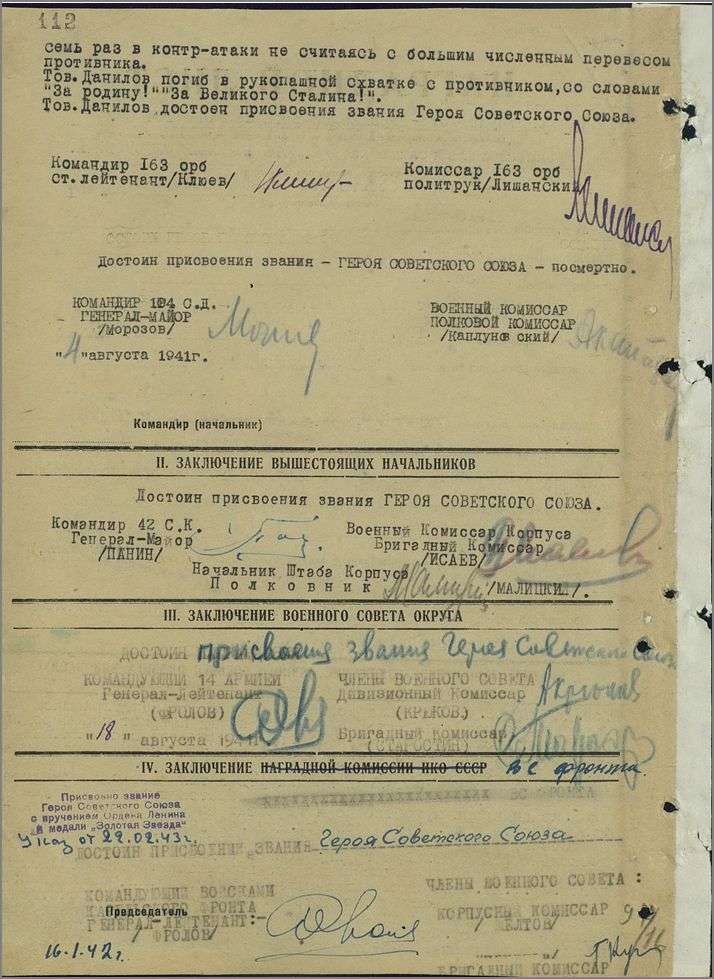 112
семь раз в контр-атаки не считаясь с большим численным перевесом
противника.
Тов.Данилов погиб в рукопашной схватке с противником,со словами
"За родину!""За Великого Сталина!".
Тов.Данилов достоин присвоения звания Героя Советского Союза.
Командир 163 орб
ст.лейтенант/Клюев/
Комиссар 163 орб
политрук/Лишанский
Достоин присвоения звания - ГЕРОЯ СОВЕТСКОГО СОЮЗА - посмертно.
КОМАНДИР 104 С.Д.
ГЕНЕРАЛ-МАЙОР
/Морозов/
"4"августа 1941г.
ВОЕННЫЙ КОМИССАР
ПОЛКОВОЙ КОМИССАР
/Каплуновский/
Командир (начальник)
II. ЗАКЛЮЧЕНИЕ ВЫШЕСТОЯЩИХ НАЧАЛЬНИКОВ
Достоин присвоения звания ГЕРОЯ СОВЕТСКОГО СОЮЗА.
Командир 42 С.К.
Генерал-Майор
/ПАНИН/
Военный Комиссар Корпуса
Бригадный Комиссар
/ИСАЕВ/
Начальник Штаба Корпуса
Полковник /МАЛИЦКИЙ/.
III. ЗАКЛЮЧЕНИЕ ВОЕННОГО СОВЕТА ОКРУГА
ДОСТОИН присвоения звания Героя Советского Союза
КОМАНДУЮЩИЙ 14 АРМИЕЙ
Генерал-Лейтенант
(ФРОЛОВ)
"18" августа 1941г.
ЧЛЕНЫ ВОЕННОГО СОВЕТА
Дивизионный Комиссар
(КРЮКОВ)
Бригадный Комиссар
(СТАРОСТИН)
IV. ЗАКЛЮЧЕНИЕ НАГРАДНОЙ КОМИССИИ НКО СССР ВС фронта
ВС ФРОНТА
Присвоено звание
Героя Советского Союза
с вручением Ордена Ленина
и медали „Золотая Звезда"
Указ от 22.02.43г.
ДОСТОИН ПРИСВОЕНИЯ ЗВАНИЯ Героя Советского Союза
КОМАНДУЮЩИЙ ВОЙСКАМИ
КАРЕЛЬСКОГО ФРОНТА
Председатель
ГЕНЕРАЛ-ЛЕЙТЕНАНТ:-
/ФРОЛОВ/
16.1.42г.
ЧЛЕНЫ ВОЕННОГО СОВЕТА :
КОРПУСНЫЙ КОМИССАР
/ЖЕЛТОВ/
БРИГАДНЫЙ КОМИССАР